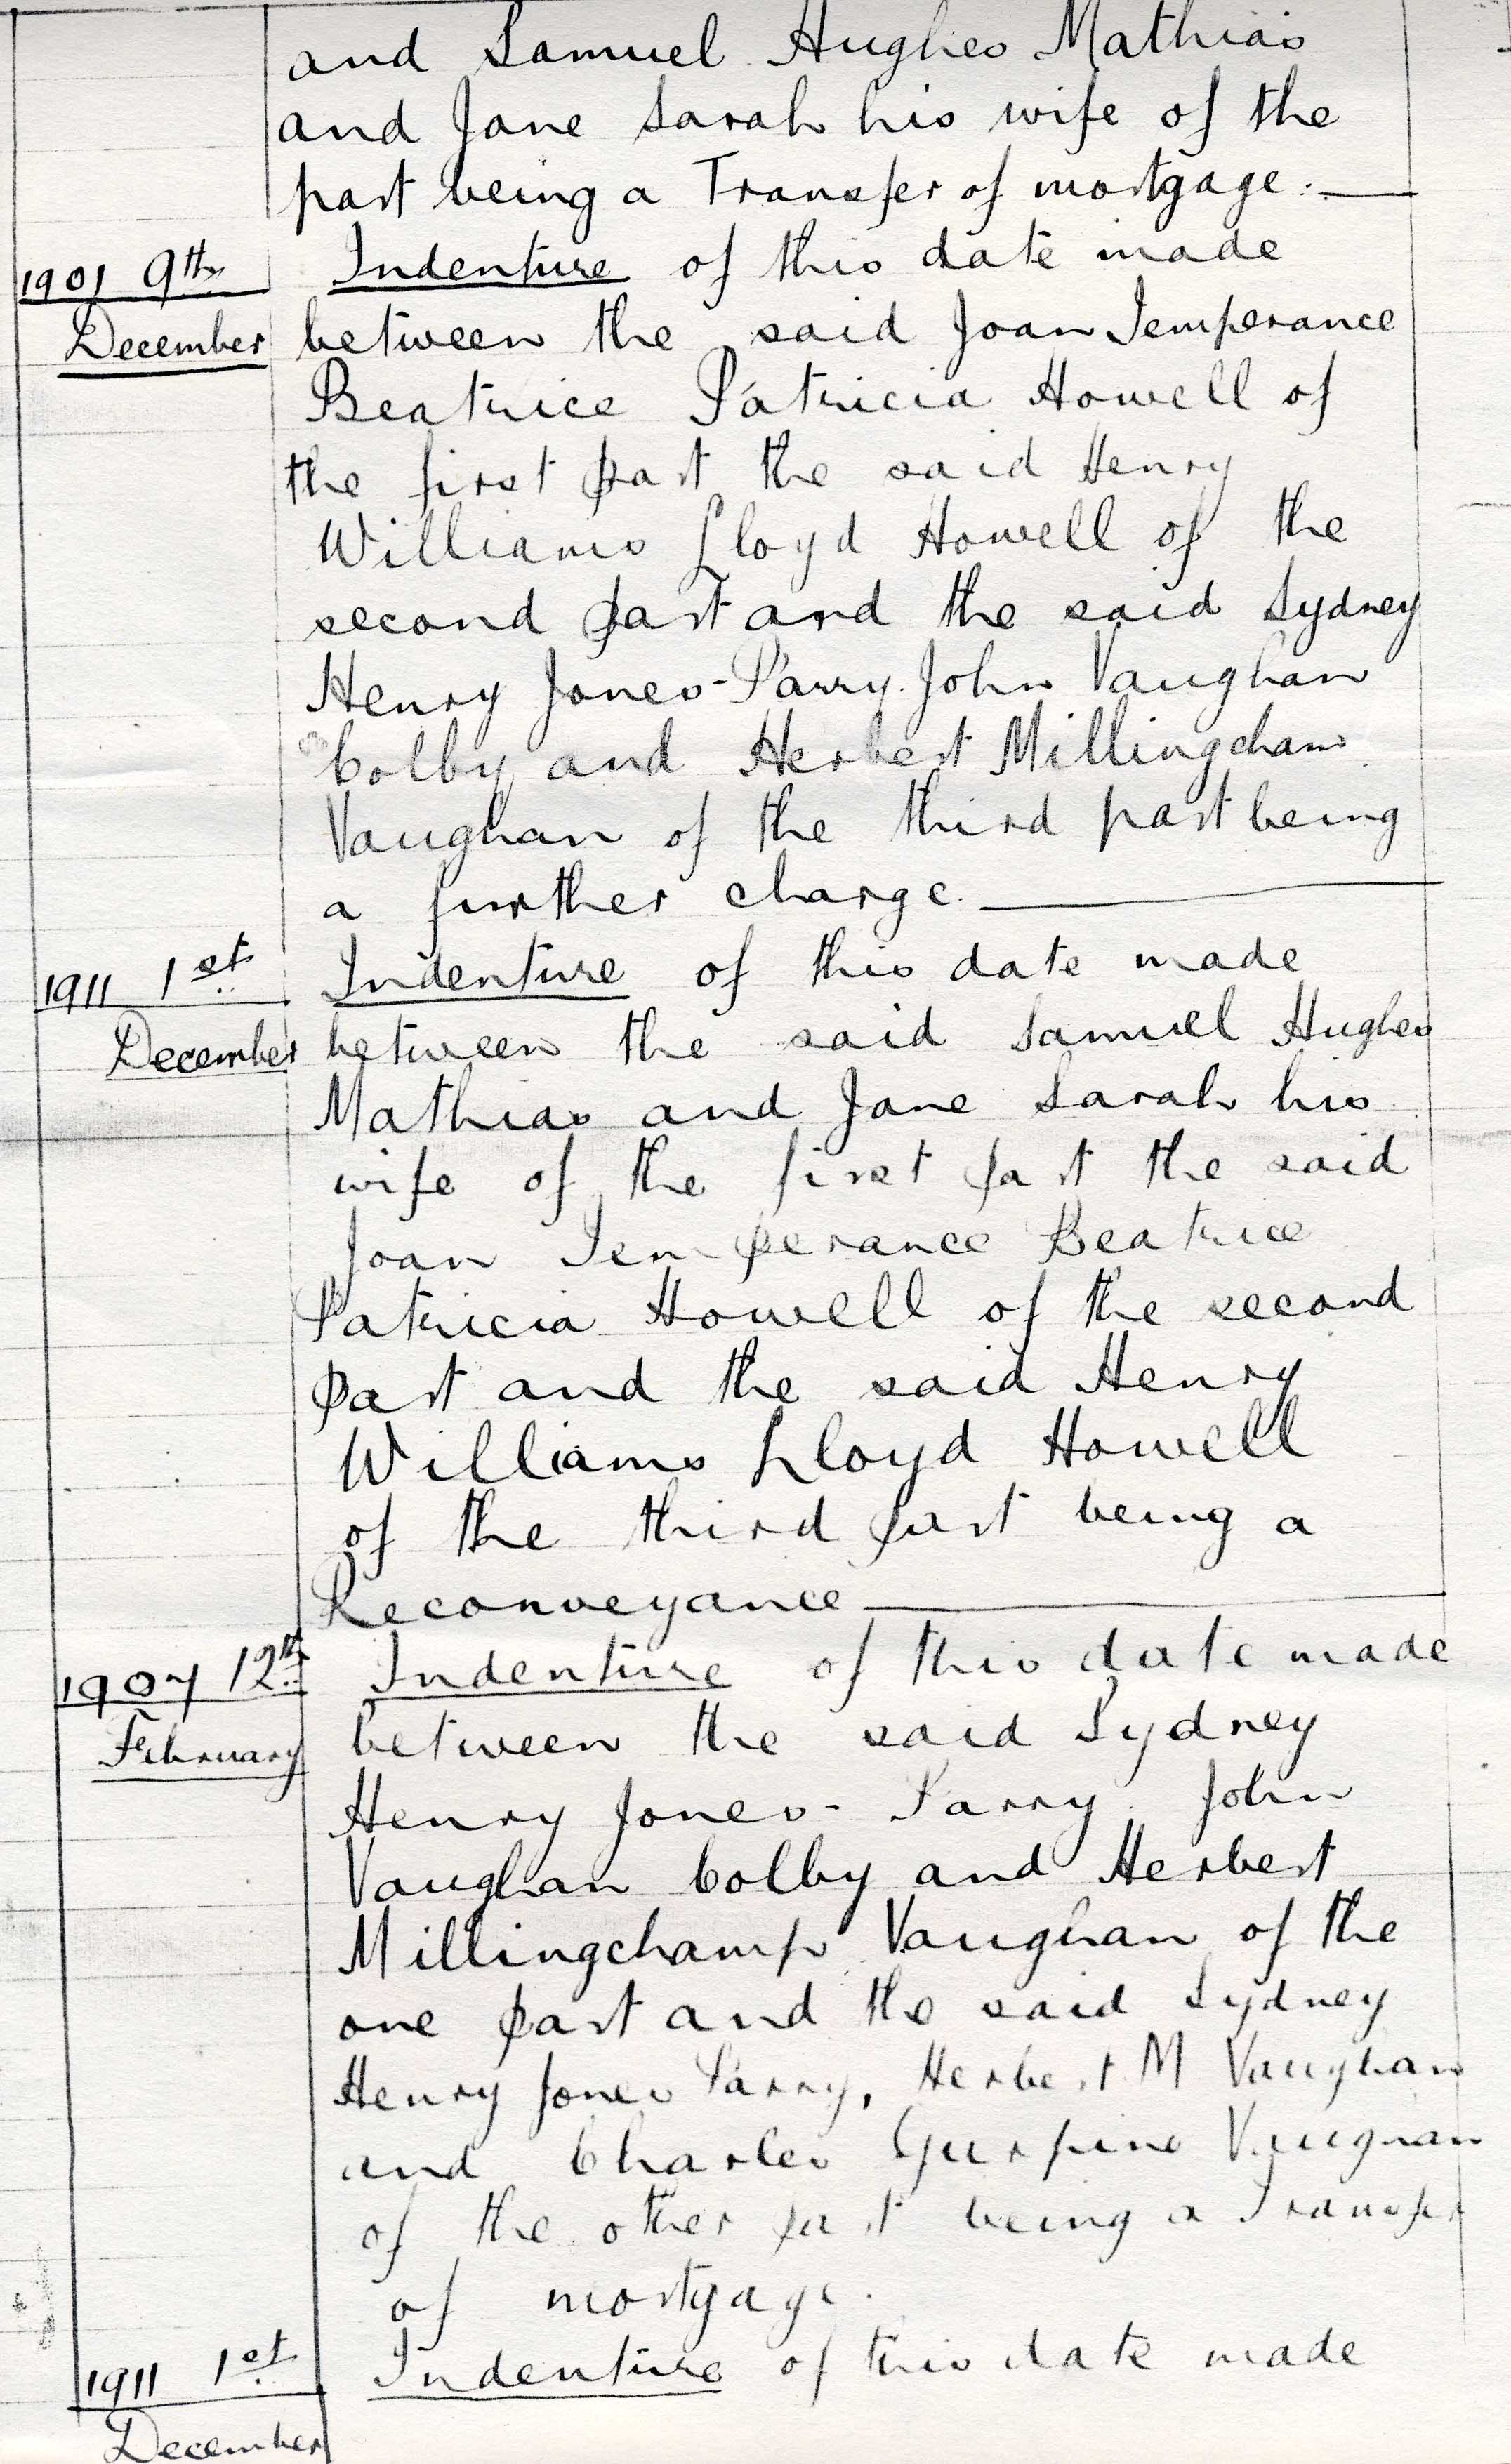 and Samuel Hughes Mathias
and Jane Sarah his wife of the
part being a Transfer of mortgage:—
1901 9th
December
Indenture of this date made
between the said Joan Temperance
Beatrice Patricia Howell of
the first part the said Henry
Williams Lloyd Howell of the
second part and the said Sydney
Henry Jones-Parry. John Vaughan
Colby and Herbert Millingcham
Vaughan of the third part being
a further charge.—
1911 1st
December
Indenture of this date made
between the said Samuel Hughes
Mathias and Jane Sarah his
wife of the first part the said
Joan Temperance Beatrice
Patricia Howell of the second
part and the said Henry
Williams Lloyd Howell
of the third part being a
Reconveyance—
1907 12th
February
Indenture of this date made
between the said Sydney
Henry Jones-Parry. John
Vaughan Colby and Herbert
Millingchamp Vaughan of the
one part and the said Sydney
Henry Jones Parry, Herbert M Vaughan
and Charles Gurpine Vaughan
of the other part being a Transfer
of mortgage.
1911 1st
December
Indenture of this date made